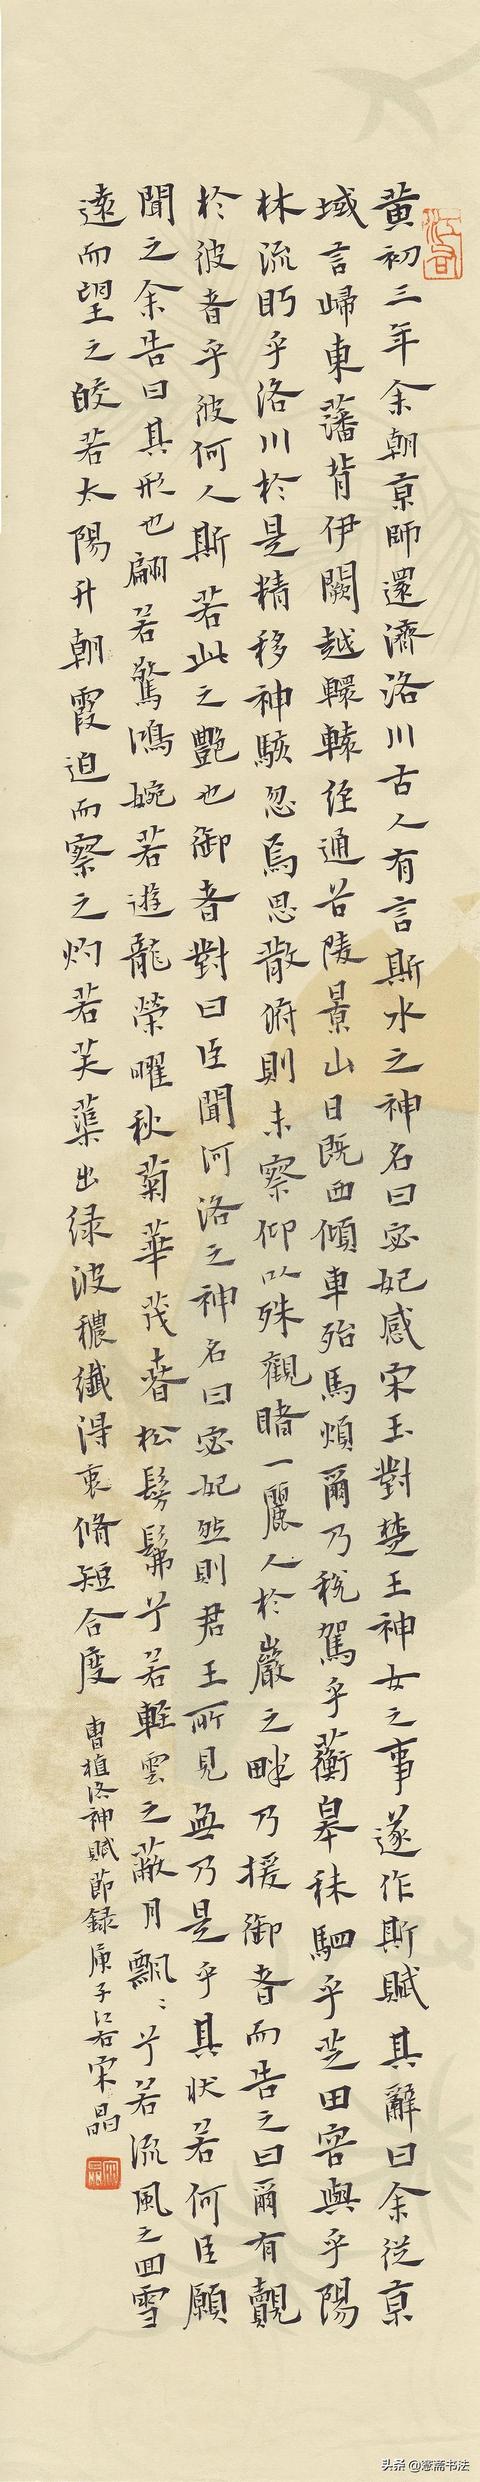 江右
黄初三年余朝京師還濟洛川古人有言斯水之神名曰宓妃感宋玉對楚王神女之事遂作斯賦其辭曰余從京
域言歸東藩背伊闕越轘轅經通谷陵景山日既西傾車殆馬煩爾乃稅駕乎蘅皋秣駟乎芝田容與乎陽
林流眄乎洛川於是精移神駭忽焉思散俯則未察仰以殊觀睹一麗人於巖之畔乃援御者而告之曰爾有覿
於彼者乎彼何人斯若此之艷也御者對曰臣聞河洛之神名曰宓妃然則君王所見無乃是乎其狀若何臣願
聞之余告曰其形也翩若驚鴻婉若遊龍榮曜秋菊華茂春松髣髴兮若輕雲之蔽月飄飄兮若流風之回雪
遠而望之皎若太陽升朝霞迫而察之灼若芙蕖出绿波穠纖得衷脩短合度
曹植洛神賦節録庚子江右宋晶
头条@愙斋书法